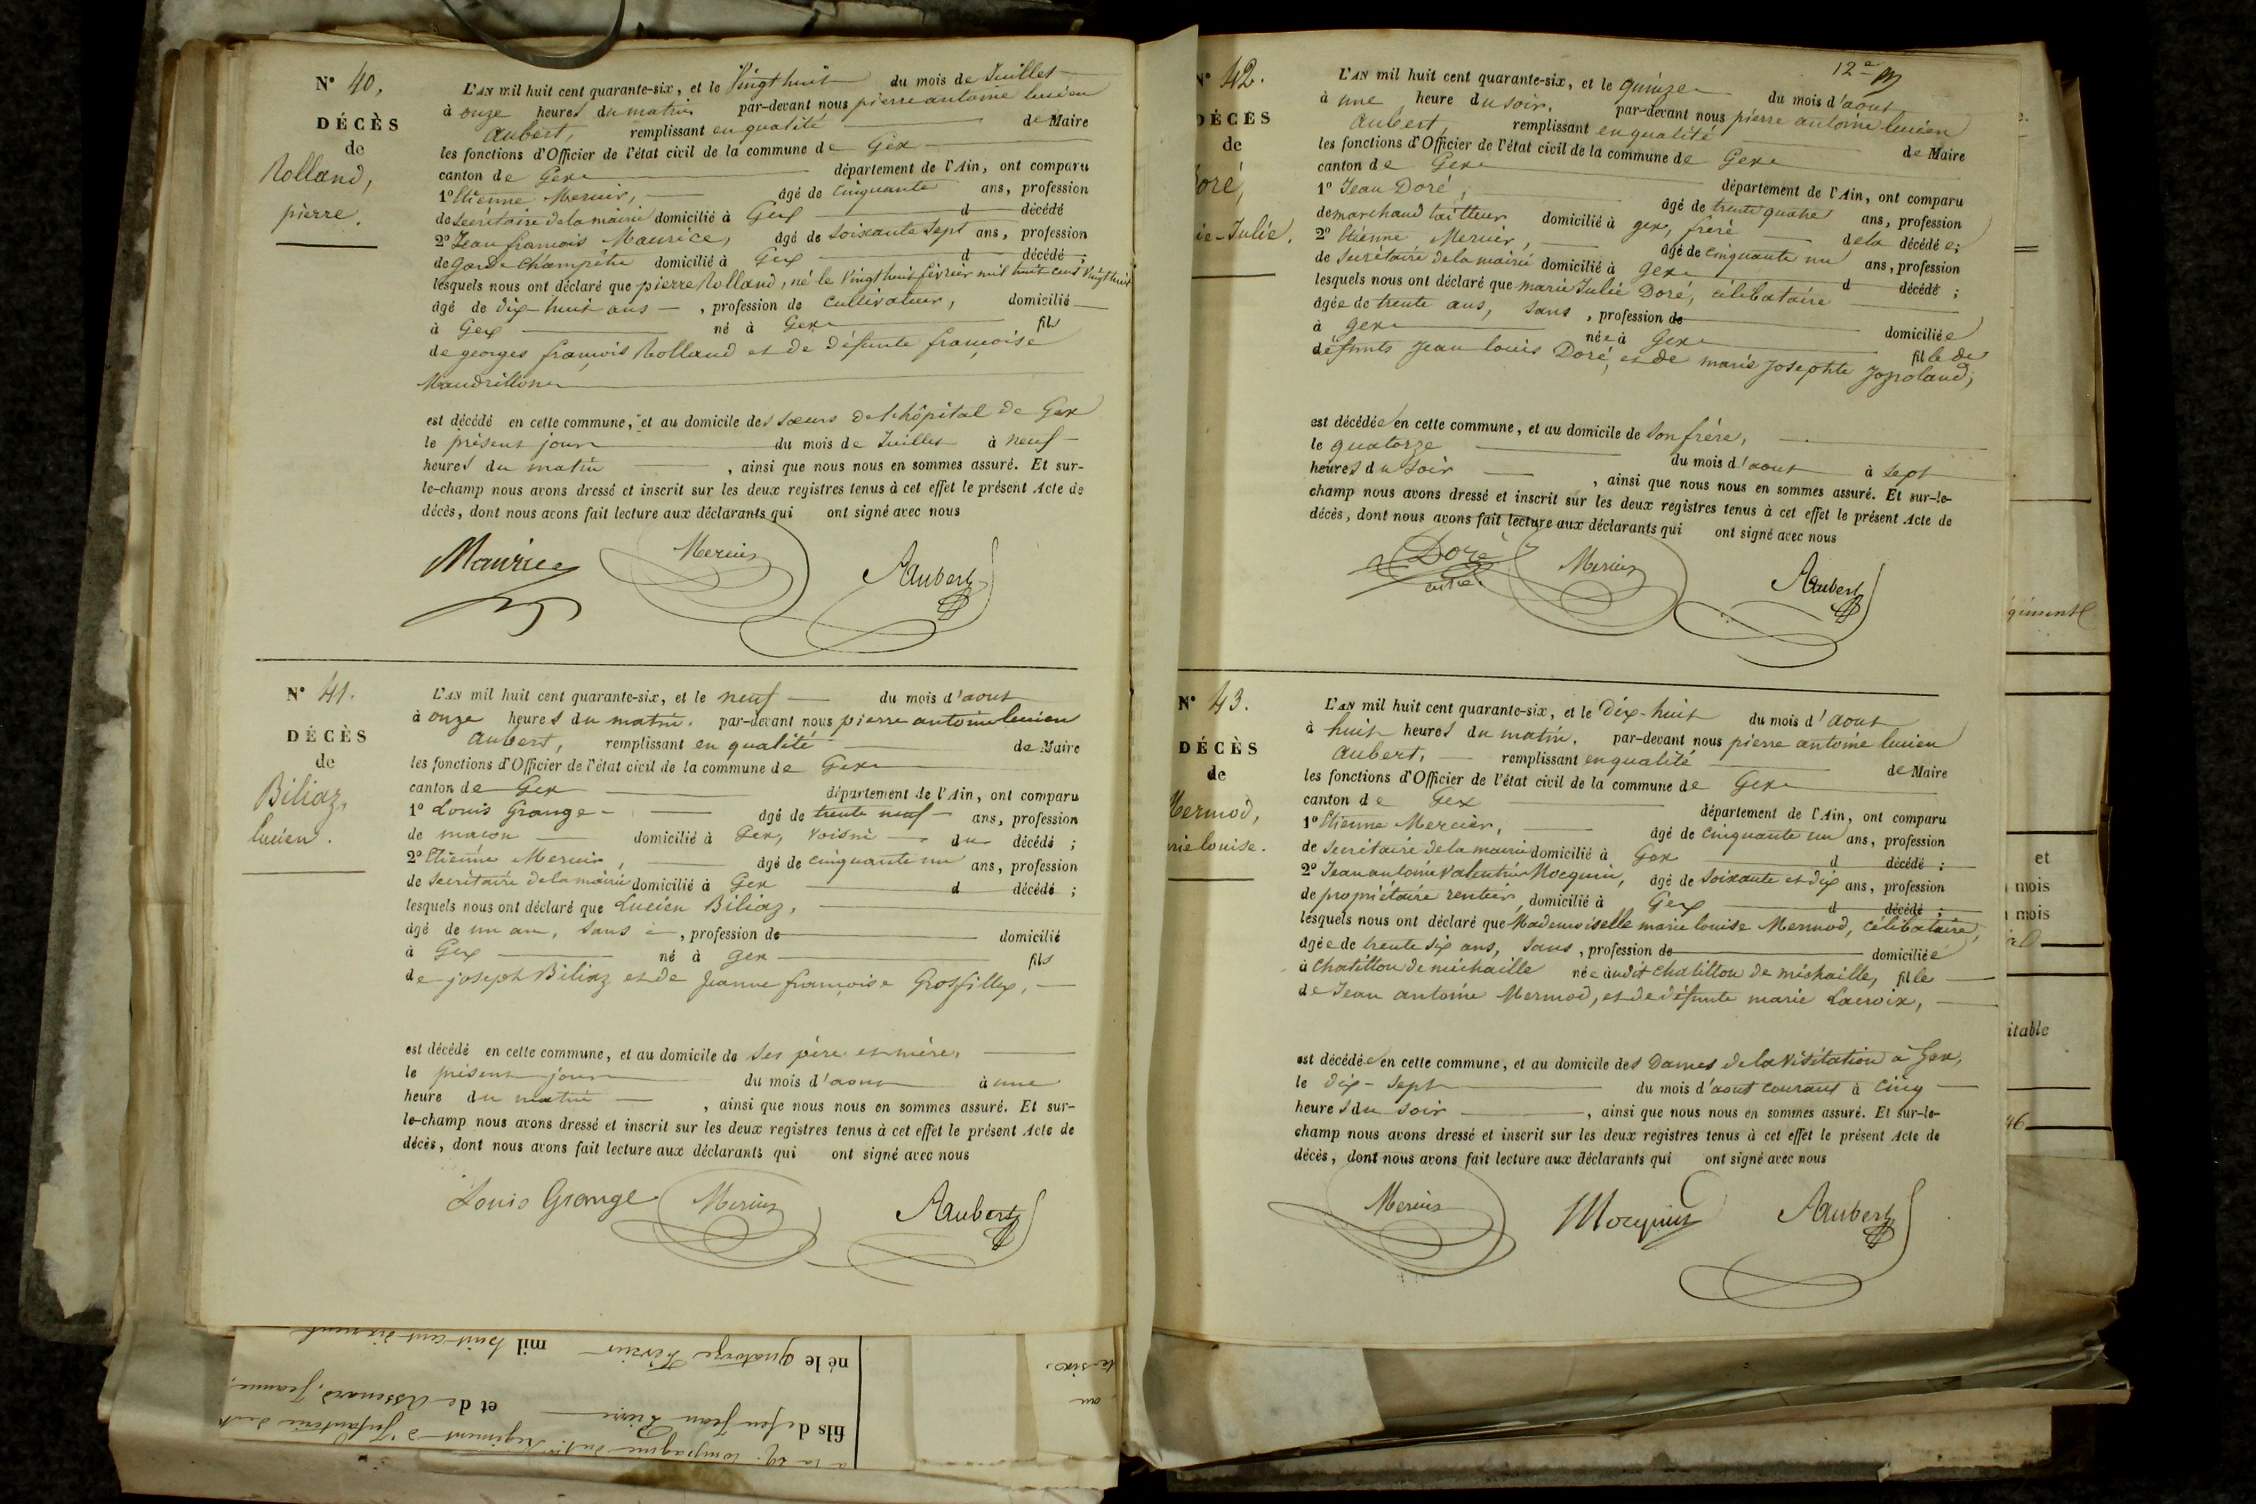 N° 40.
DÉCÈS
de
Rolland,
pierre.
L'AN mil huit cent quarante-six, et le Vingt huit du mois de Juillet
à onze heures du matin par-devant nous pierre antoine lucien
aubert, remplissant en qualité de Maire
les fonctions d'Officier de l'état civil de la commune de Gex
canton de Gex département de l'Ain, ont comparu
1° Etienne Mercier, âgé de cinquante ans, profession
de secrétaire de la mairie domicilié à Gex d décédé
2° Jean françois Maurice, âgé de soixante sept ans, profession
de garde champêtre domicilié à Gex d décédé ;
lesquels nous ont déclaré que pierre Rolland, né le Vingt huit février mil huit cent vingt huit
âgé de dix-huit ans, profession de cultivateur, domicilié
à Gex né à Gex fils
de georges françois Rolland et de défunte françoise
Mandrillon
est décédé en cette commune, et au domicile des sœurs de l'hôpital de Gex
le présent jour du mois de Juillet à neuf
heures du matin, ainsi que nous nous en sommes assuré. Et sur-
le-champ nous avons dressé et inscrit sur les deux registres tenus à cet effet le présent Acte de
décès, dont nous avons fait lecture aux déclarants qui ont signé avec nous
Maurice Mercier Aubert
N° 41.
DÉCÈS
de
Biliaz,
lucien.
L'AN mil huit cent quarante-six, et le neuf du mois d'aout
à onze heures du matin. par-devant nous pierre antoine lucien
aubert, remplissant en qualité de Maire
les fonctions d'Officier de l'état civil de la commune de Gex
canton de Gex département de l'Ain, ont comparu
1° Louis Grange âgé de trente neuf ans, profession
de maçon domicilié à Gex, voisin du décédé ;
2° Etienne Mercier, âgé de cinquante un ans, profession
de secrétaire de la mairie domicilié à Gex d décédé ;
lesquels nous ont déclaré que Lucien Biliaz,
âgé de un an, sans, profession de domicilié
à Gex né à gex fils
de joseph Biliaz et de Jeanne françoise Grosfillex,
est décédé en cette commune, et au domicile de ses père et mère,
le présent jour du mois d'aout à une
heure du matin, ainsi que nous nous en sommes assuré. Et sur-
le-champ nous avons dressé et inscrit sur les deux registres tenus à cet effet le présent Acte de
décès, dont nous avons fait lecture aux déclarants qui ont signé avec nous
Louis Grange Mercier Aubert
né le quatorze février mil huit cent
fils de feu Jean Pierre et de Jeanne
N° 42.
DÉCÈS
de
Doré,
ie-Julie.
12e
L'AN mil huit cent quarante-six, et le quinze du mois d'aout
à une heure du soir. par-devant nous pierre antoine lucien
aubert, remplissant en qualité de Maire
les fonctions d'Officier de l'état civil de la commune de Gex
canton de Gex département de l'Ain, ont comparu
1° Jean Doré, âgé de trente quatre ans, profession
de marchand tailleur domicilié à gex, frère de la décédée ;
2° Etienne Mercier, âgé de cinquante un ans, profession
de secrétaire de la mairie domicilié à gex d décédé ;
lesquels nous ont déclaré que marie Julie Doré, célibataire
âgée de trente ans, sans, profession de
à gex née à Gex domiciliée
fille de
défunts Jean louis Doré, et de marie josephte
est décédée en cette commune, et au domicile de son frère,
le quatorze du mois d'aout à sept
heures du soir, ainsi que nous nous en sommes assuré. Et sur-le-
champ nous avons dressé et inscrit sur les deux registres tenus à cet effet le présent Acte de
décès, dont nous avons fait lecture aux déclarants qui ont signé avec nous
Doré Mercier Aubert
N° 43.
DÉCÈS
de
Mermod,
rie louise.
L'AN mil huit cent quarante-six, et le dix-huit du mois d'aout
à huit heures du matin. par-devant nous pierre antoine lucien
aubert, remplissant en qualité de Maire
les fonctions d'Officier de l'état civil de la commune de Gex
canton de Gex département de l'Ain, ont comparu
1° Etienne Mercier, âgé de cinquante un ans, profession
de secrétaire de la mairie domicilié à Gex d décédé ;
2° Jean antoine Valentin Mocquin, âgé de soixante et dix ans, profession
de propriétaire rentier, domicilié à Gex d décédé ;
lesquels nous ont déclaré que Mademoiselle marie louise Mermod, célibataire,
âgée de trente six ans, sans, profession de domiciliée
à Chatillon de michaille née audit chatillon de michaille, fille
de Jean antoine Mermod, et de défunte marie Lacroix,
est décédée en cette commune, et au domicile des Dames de la Visitation à Gex,
le dix-sept du mois d'aout courant à cinq
heures du soir, ainsi que nous nous en sommes assuré. Et sur-le-
champ nous avons dressé et inscrit sur les deux registres tenus à cet effet le présent Acte de
décès, dont nous avons fait lecture aux déclarants qui ont signé avec nous
Mercier Mocquin Aubert
et
mois
mois
itable
46